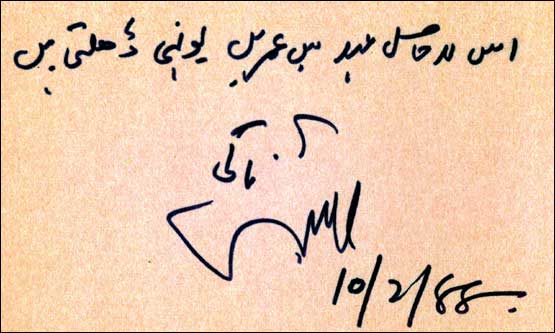 اس لا حاصل عہد میں عمریں یونہی ڈھلتی ہیں
10/2/88